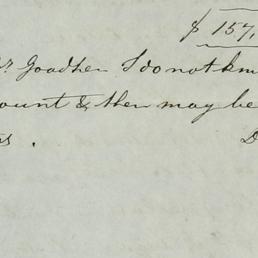 $ 157,
r. Goodhen I do not kn
ount & then may be
s. D